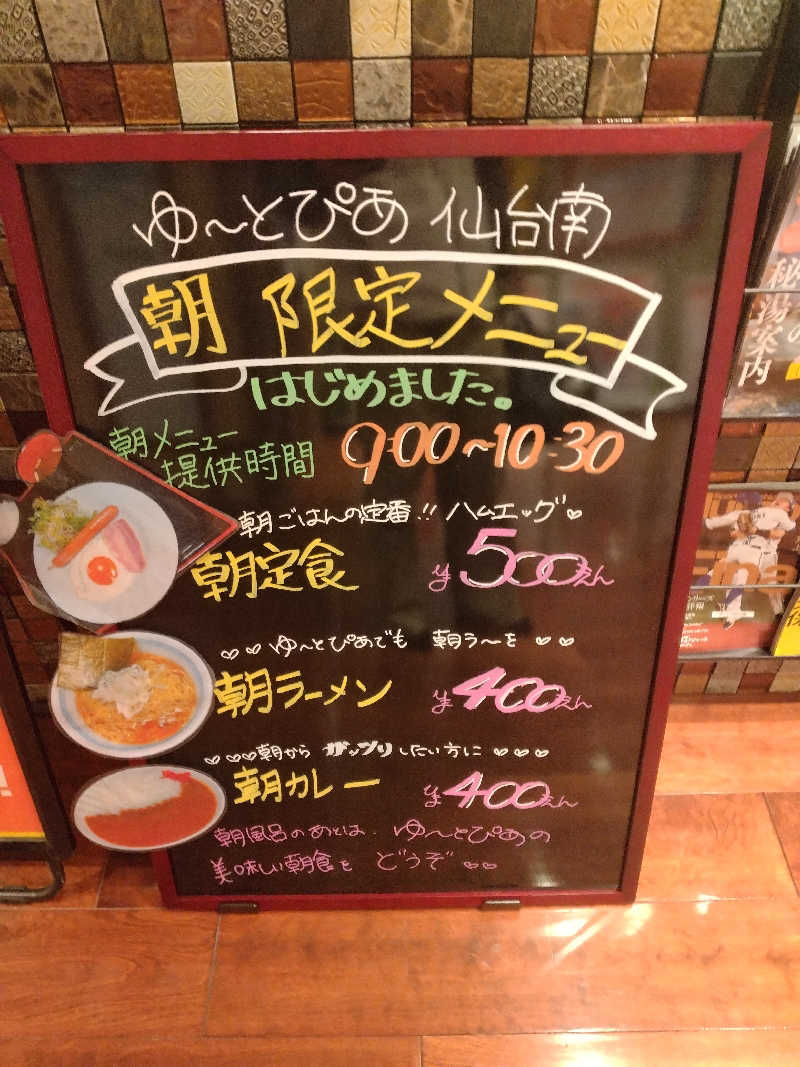 ゆ～とぴあ 仙台南
朝 限定メニュー
はじめました。
朝メニュー
提供時間
9:00～10:30
朝ごはんの定番!! ハムエッグ♡
朝定食 ¥500えん
♡♡ ゆ～とぴあでも 朝ラ～を ♡♡
朝ラーメン ¥400えん
♡♡♡朝から ガッツリしたい方に ♡♡♡
朝カレー ¥400えん
朝風呂のあとは、ゆ～とぴあの
美味しい朝食を どうぞ♡♡
秘湯
案内